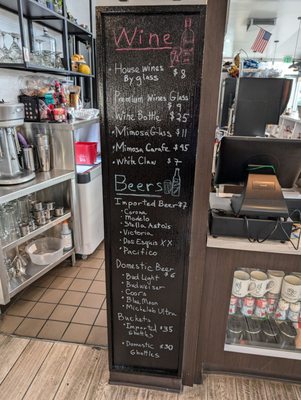 Wine
House wines
By glass $8
Premium Wines Glass
$9
Wine Bottle $25
Mimosa Glass $11
Mimosa Carafe $45
White Claw $7
Beers
Imported Beer $7
• Corona
• Modelo
• Stella Astois
• Victoria
• Dos Esquis XX
• Pacifico
Domestic Beer
$6
• Bud Light
• Budweiser
• Coors
• Blue Moon
• Michelob Ultra
Buckets
• Imported $35
5 bottles
• Domestic $30
5 bottles